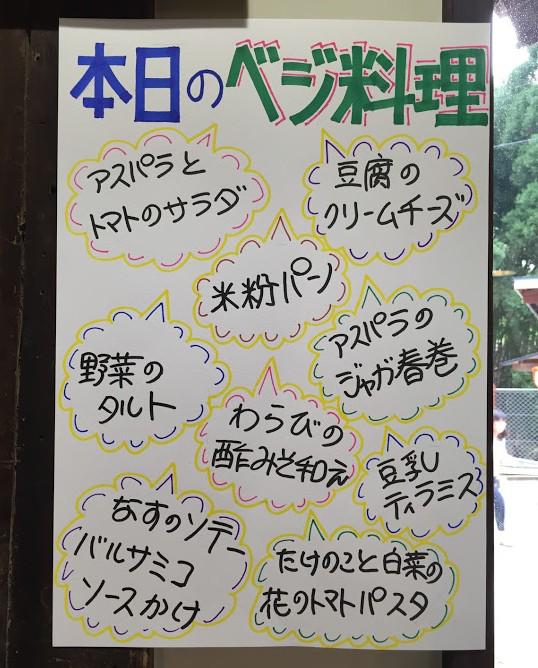 本日のベジ料理
アスパラと
トマトのサラダ
豆腐の
クリームチーズ
米粉パン
アスパラの
ジャガ春巻
野菜の
タルト
わらびの
酢みそ和え
豆乳
ティラミス
なすのソテー
バルサミコ
ソースかけ
たけのこと白菜の
花のトマトパスタ